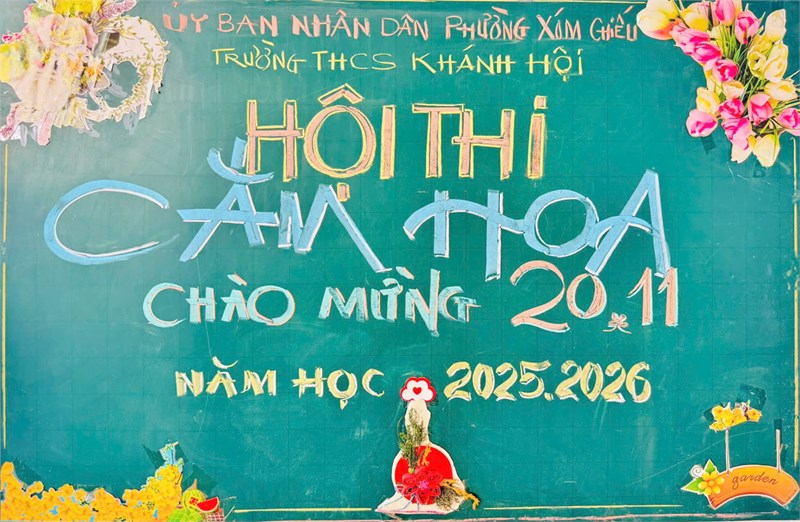 ỦY BAN NHÂN DÂN PHƯỜNG XÓM CHIẾU
TRƯỜNG THCS KHÁNH HỘI
HỘI THI
CẮM HOA
CHÀO MỪNG 20.11
NĂM HỌC 2025.2026
garden